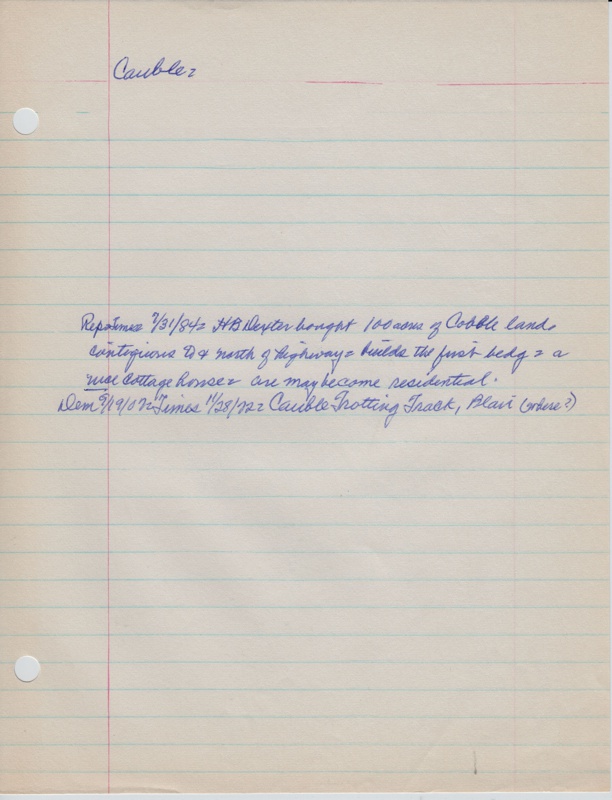 Cauble =
Rep=Times 7/31/84= HB Dexter bought 100 acres of Cobble land.
contigious to & north of highway= builds the first bedg = a
nice cottage house= are may become residential.
Dem 9/19/07=Times 11/28/22= Cauble Trotting Track, Blair (where?)